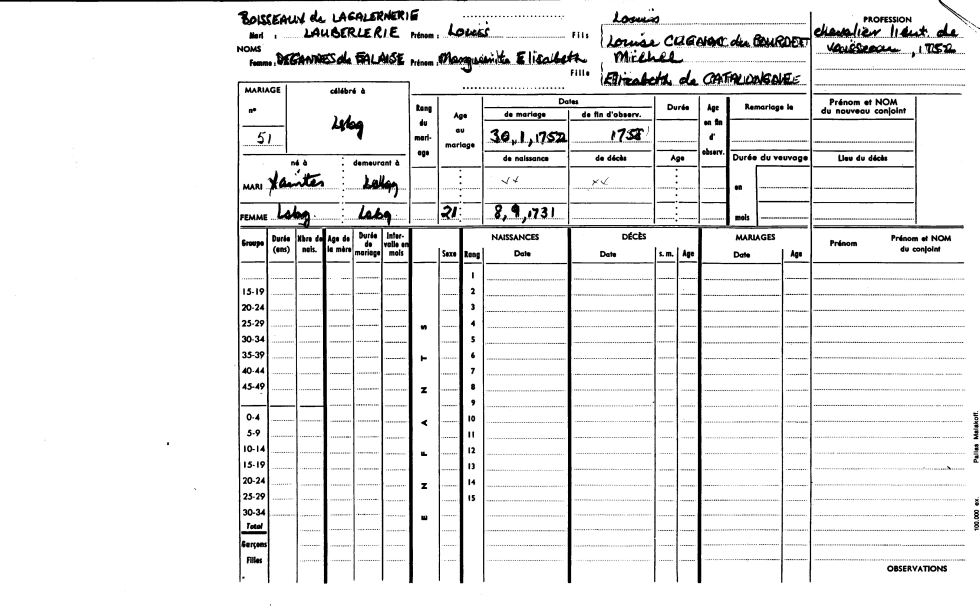 BOISSEAUX de LAGALERNERIE
Mari : LAUBERLERIE Prénom : Louis Fils Louis
Louise CUGNAC du BOURDET
NOMS
Femme : DEGANNES de FALAISE Prénom : Marguerite Elisabeth Fille Michel
Elizabeth de CATALONGNE
PROFESSION
chevalier lieut. de
vaisseau, 1752
MARIAGE
n°
51
célébré à
Lsbg
né à
demeurant à
MARI Xaintes Lsbg
FEMME Lsbg Lsbg
Rang du mari-age
Age au mariage
21
Dates
de mariage
de fin d'observ.
30,1,1752 1758
de naissance
de décès
8,9,1731
Durée
Age
Age en fin d' observ.
Remariage le
Durée du veuvage
en
mois
Prénom et NOM
du nouveau conjoint
Lieu du décès
Groupe Durée (ans) Nbre de nais. Age de la mère Durée de mariage Inter-valle en mois Sexe Rang
NAISSANCES DÉCÈS MARIAGES
Date Date s. m. Age Date Age
Prénom
Prénom et NOM
du conjoint
1
15-19 2
20-24 3
25-29 4
30-34 5
35-39 6
40-44 7
45-49 8
9
0-4 10
5-9 11
10-14 12
15-19 13
20-24 14
25-29 15
30-34
Total
Garçons
Filles
ENFANTS
OBSERVATIONS
100.000 ex. Pairies Malakoff.